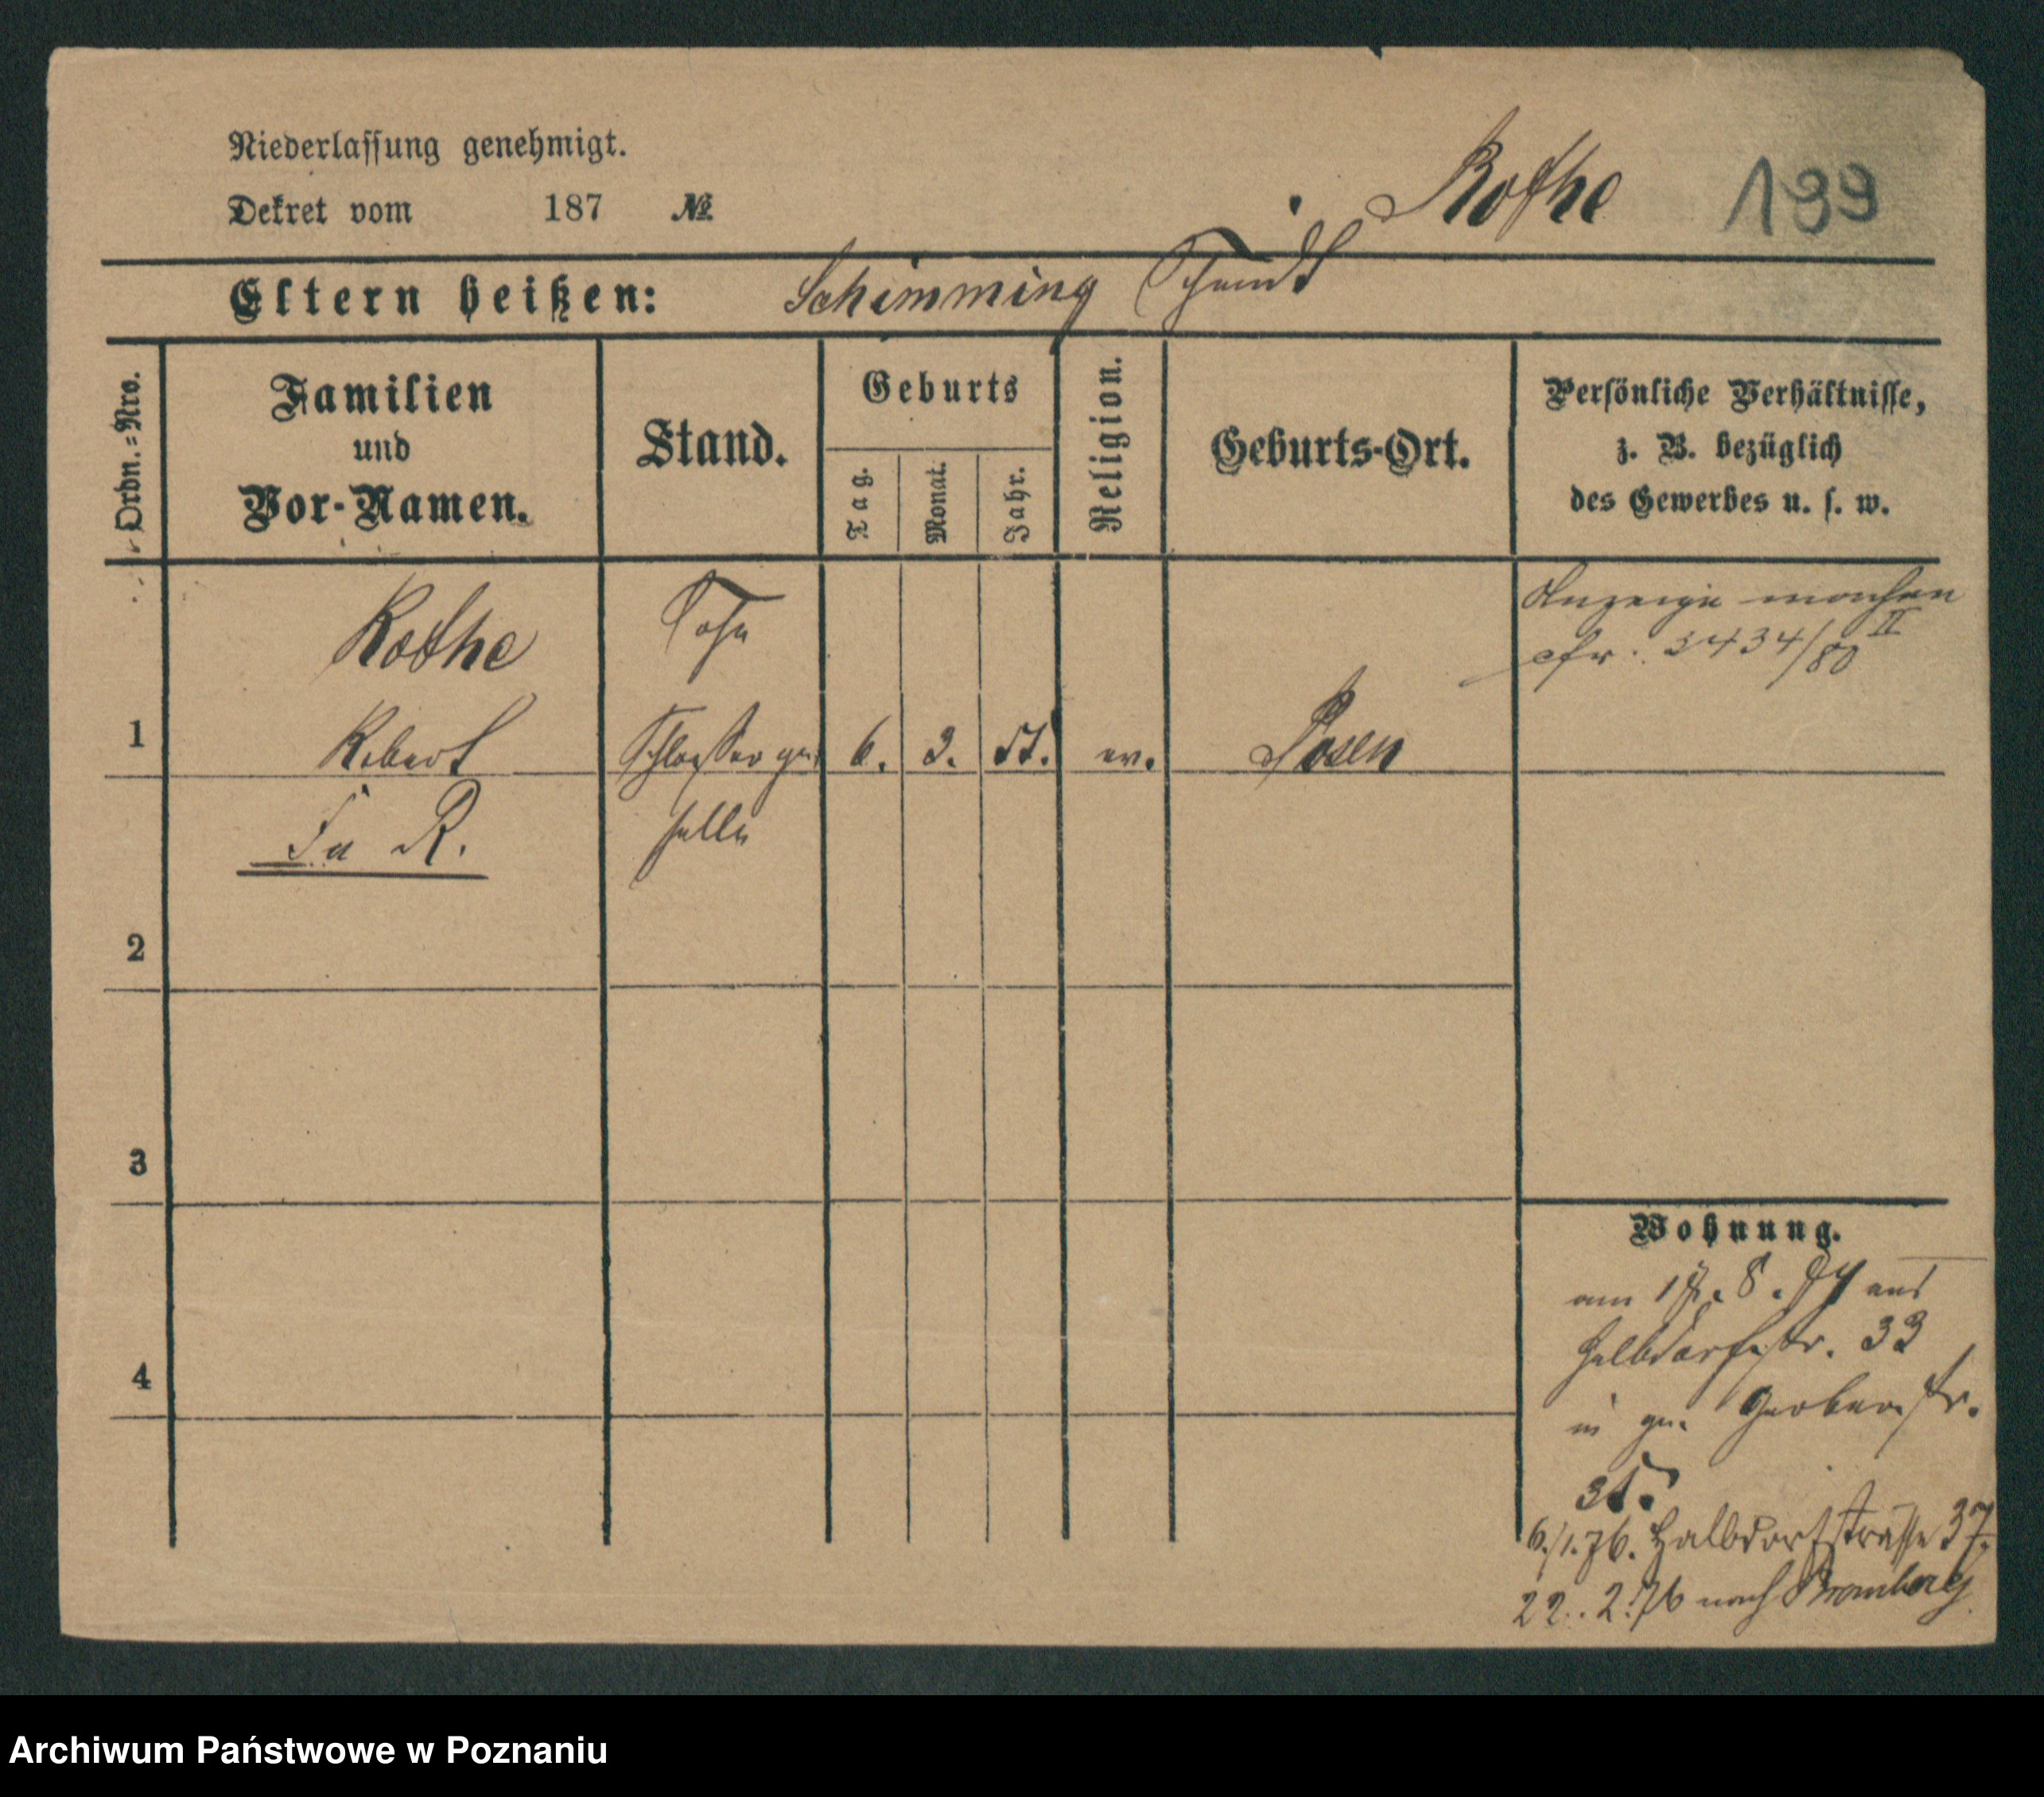 Niederlassung genehmigt.
Dekret vom 187 №
Rothe 199
Eltern heißen: Schimming
Ordn.=Nro.
Familien
und
Vor-Namen.
Stand.
Geburts
Tag.
Monat.
Jahr.
Religion.
Geburts-Ort.
Persönliche Verhältnisse,
z. B. bezüglich
des Gewerbes u. s. w.
Rothe Sohn
Anzeige machen
cfr. 3434/80 II
1 Robert Schlosser ge, 6. 3. 57. ev. Posen
R. selle
2
3
4
Wohnung.
am 8. 74 aus
Halbdorfstr. 33
in Gerberstr.
6./1.76. Halbdorfstrasse 37.
22. 2. 76 nach Bromberg
Archiwum Państwowe w Poznaniu